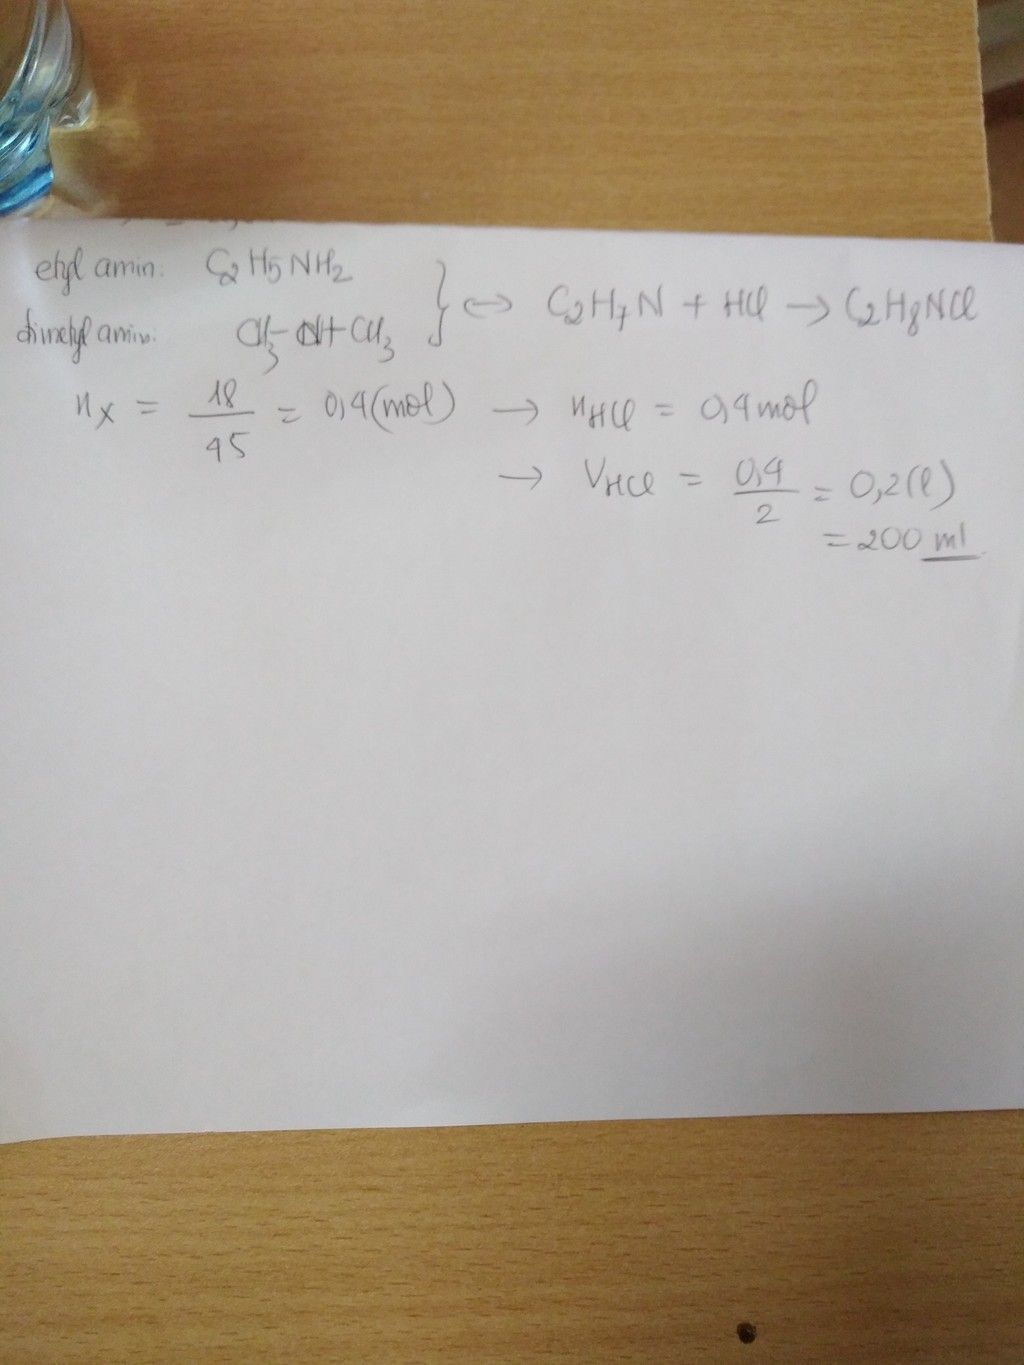 etyl amin: C2H5NH2
đimetyl amin: CH3-NH-CH3 } <=> C2H7N + HCl → C2H8NCl
nX = 18/45 = 0,4(mol) → nHCl = 0,4 mol
→ VHCl = 0,4/2 = 0,2(l)
= 200 ml